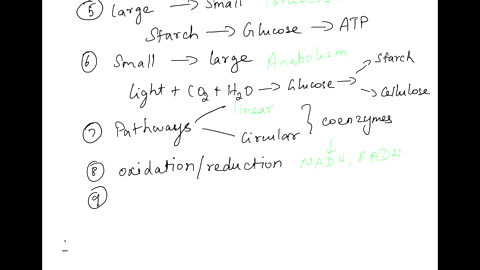 ⑤ Large → Small
Starch → Glucose → ATP
⑥ Small → large Anabolism
light + CO2 + H2O → Glucose → Starch
→ Cellulose
⑦ Pathways linear
Circular } coenzymes
⑧ oxidation/reduction NADH, FADH
⑨